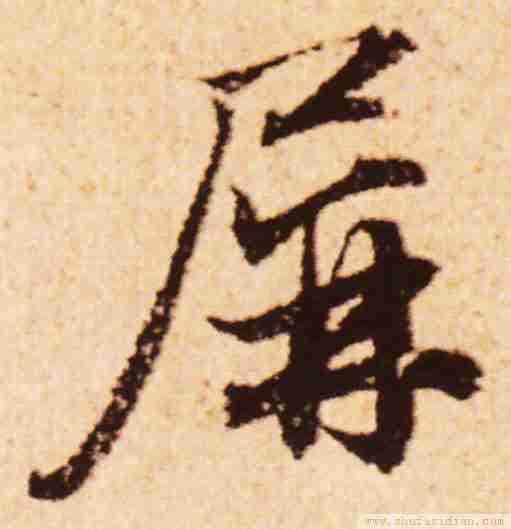 屏
www.shufazidian.com